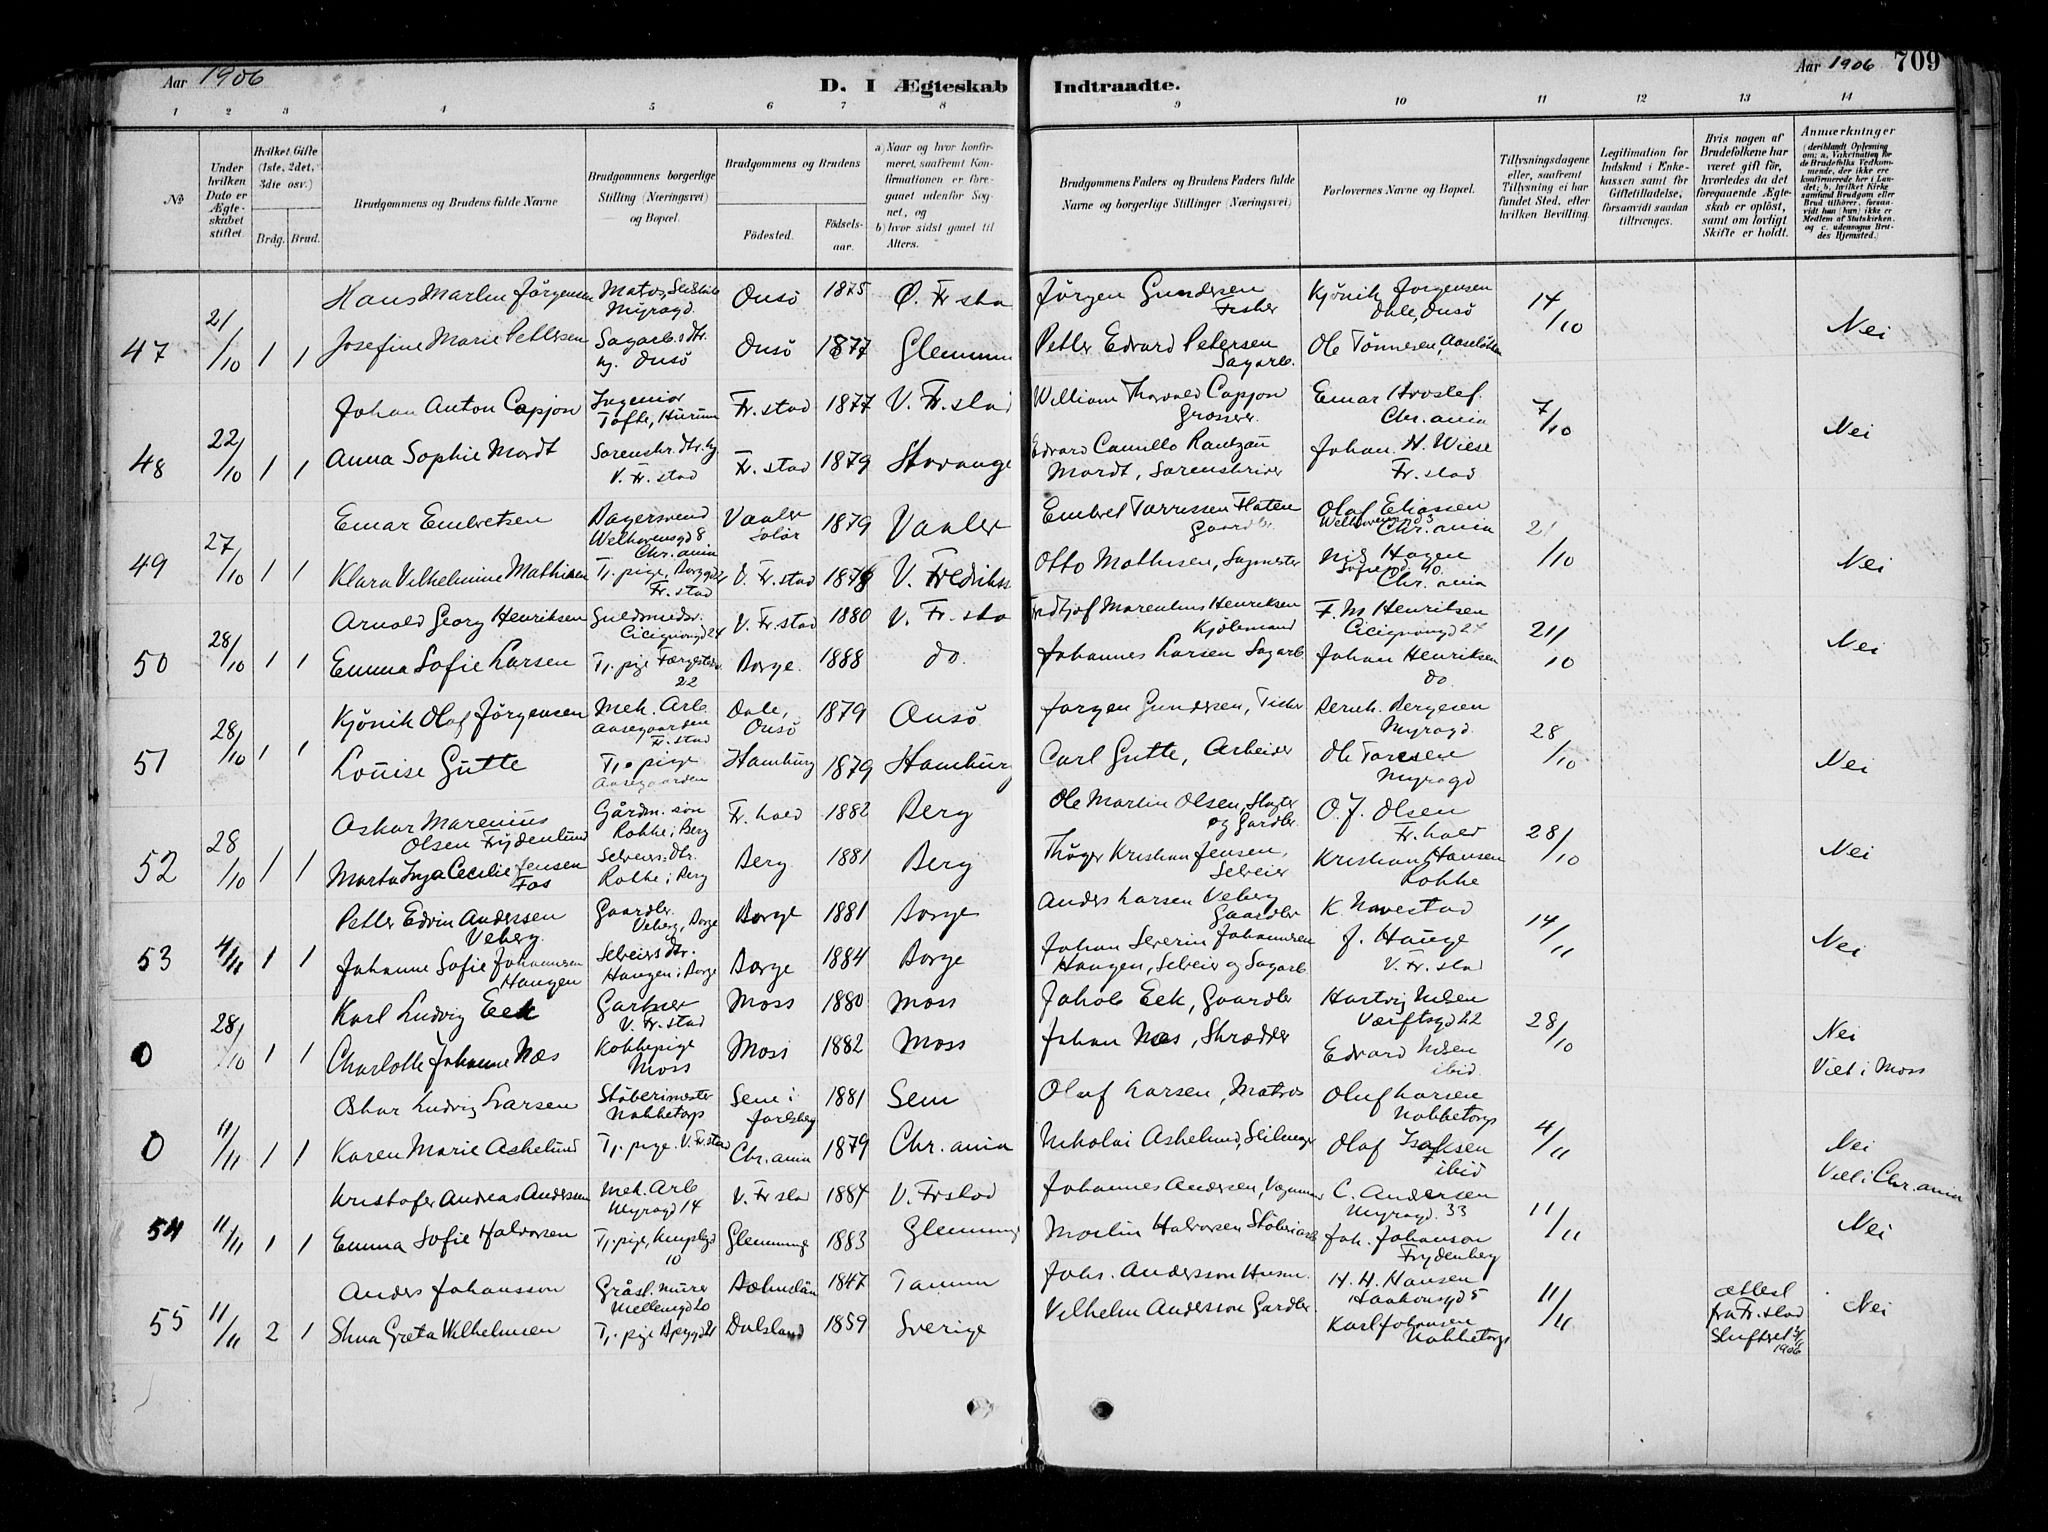 Aar 1906
D. I Ægteskab Indtraadte.
Aar 1906 709
1 2 3 4 5 6 7 8 9 10 11 12 13 14
No
Under hvilken Dato er Ægteskabet stiftet.
Hvilket Gifte (1ste, 2det, 3die osv.)
Brdg. Brud.
Brudgommens og Brudens fulde Navne
Brudgommens borgerlige Stilling (Næringsvei) og Bopæl.
Brudgommens og Brudens
Fødested.
Fødselsaar.
a) Naar og hvor konfirmeret, saafremt Konfirmationen er foregaaet udenfor Sognet, og
b) hvor sidst gaaet til Alters.
Brudgommens Faders og Brudens Faders fulde Navne og borgerlige Stillinger (Næringsvei)
Forlovernes Navne og Bopæl.
Tillysningsdagene eller, saafremt Tillysning ei har fundet Sted, efter hvilken Bevilling.
Legitimation for Indskud i Enkekassen samt for Giftetilladelse, forsaavidt saadan tiltrænges.
Hvis nogen af Brudefolkene har været gift før, hvorledes da det foregaaende Ægteskab er opløst, samt om lovligt Skifte er holdt.
Anmærkninger (deriblandt Oplysning om; a, Vakcination for de Brudefolks Vedkommende, der ikke ere konfirmerede her i Landet; b, hvilket Kirkesamfund Brudgom eller Brud tilhører, forsaavidt han (hun) ikke er Medlem af Statskirken, og c, udensogns Brudes Hjemsted.)
Hans Martin Jörgensen Matros, Myragd. Onsö 1875 Ø. Fr.sta Jörgen Gundersen Fisker Kjönik Jorgensen Dale, Onsö 14/10
47 21/10 1 1 Josefine Marie Pettersen Sagarb.s dtr. Onsö Onsö 1877 Glemmin Petter Edvard Petersen Sagarb. Ole Tönnesen, Nei
Johan Anton Capjon Ingeniör Tofte, Hurum Fr.stad 1877 V. Fr.stad William Thorvald Capjon Grosserer Einar Hroslef. Chr.ania 7/10
48 22/10 1 1 Anna Sophie Mordt Sorenskr. dtr. V. Fr.stad Fr.stad 1879 Stavange Edvard Camillo Rantzau Mordt, Sorenskriver Johan H. Wiese Fr.stad Nei
Einar Embretsen Bagersvend Welhavensgd 8 Chr.ania Vaaler Solör 1879 Vaaler Embret Tarresen Floten Gaardbr. Olaf Eliassen Chr.ania 21/10
49 27/10 1 1 Klara Vilhelmine Mathisen Tj. pige, Fr.stad V. Fr.stad 1878 V. Fredrikss Otto Mathisen, Sagmester Nils Hagen Chr.ania Nei
Arnold Georg Henriksen Guldsmedsv. Cicignongd 24 V. Fr.stad 1880 V. Fr.sta Fridtjof Marentius Henriksen Kjölemand F. M Henriksen Cicignongd 24 21/10
50 28/10 1 1 Emma Sofie Larsen Tj. pige 22 Borge. 1888 do. Johannes Larsen Sagarb Johan Henriksen do. Nei
Kjönik Olaf Jörgensen Mek. Arb. Aasegaarden Fr.stad Dale, Onsö 1879 Onsö Jorgen Gundersen, Fisker Bernh. Bergesen Myragd. 28/10
51 28/10 1 1 Louise Gütte Tj. pige Aasegaarden Hamburg 1879 Hamburg Carl Gutte, Arbeider Ole Myragd Nei
Askar Marenius Olsen Frydenlund Gårdm. sön Rokke i Berg Fr.hald 1882 Berg Ole Martin Olsen, Slagter og Gardbr. O. J. Olsen Fr.hald 28/10
52 28/10 1 1 Marta Inga Cecilie Jensen Fos Selveiers dtr. Rokke i Berg Berg 1881 Berg Thöger Kristian Jensen, Selveier Kristian Hansen Rokke Nei
Petter Edvin Anderssen Veberg. Gaardbr. Veberg, Borge Borge 1881 Borge Anders Larsen Veberg Gaardbr K. Navestad 14/11
53 4/11 1 1 Johanne Sofie Johannsen Haugen Selveiers dtr. Haugen i Borge Borge 1884 Borge Johan Severin Johannsen Haugen, Selveier og Sagarb J. Hauge V. Fr.stad Nei
Karl Ludvig Eek Gartner V. Fr.stad Moss 1880 Moss Jakob Eek, Gaardbr Hartvig Nilsen Værftsgd 22 28/10
0 28/10 1 1 Charlotte Johanne Næs Kokkepige Moss Moss 1882 Moss Johan Næs, Skrædder Edvard Nilsen ibid. Nei Viet i Moss
Oskar Ludvig Larsen Stöberimester Nabbetorp Sem i Jarlsberg 1881 Sem Olaf Larsen, Matros Oluf Larsen Nabbetorp 4/11
0 11/11 1 1 Karen Marie Askelund Tj. pige. V. Fr.stad Chr.ania 1879 Chr.ania Nikolai Askelund, Olaf Isaksen ibid Nei Viet i Chr.ania
Kristofer Andreas Andersen Mek. Arb Myragd 14 V. Fr stad 1884 V. Frstad Johannes Andersen, C. Andersen Myragd. 33 11/11
54 11/11 1 1 Emma Sofie Halvorsen Tj. pige, 10 Glemminge 1883 Glemminge Martin Halvorsen Stöberiarb Joh. Johanson Frydenberg Nei
Anders Johansson Gråst. murer Mellemgd 20 Bohuslän 1847 Tanum Johs. Andersson Husm. H. H. Hansen Haakonsgd 5 11/11 attest fra Fr.stad Skifteret 1906
55 11/11 2 1 Stina Greta Wilhelmsen Tj. pige Dalsland 1859 Sverige Vilhelm Andersson Gardbr. Karl Johansen Nabbetorp Nei